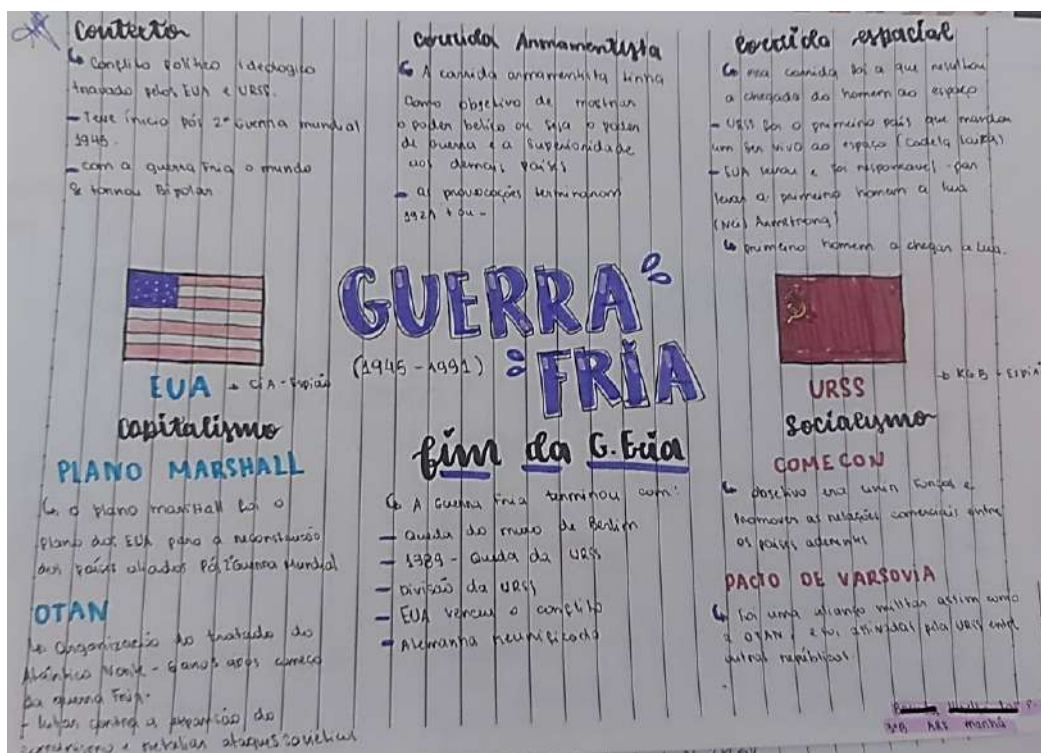 Contexto
↳ Conflito político ideologico
travado pelos EUA e URSS.
- Teve início pós 2ª Guerra mundial
1945.
- com a guerra Fria o mundo
se tornou Bipolar
Corrida Armamentista
↳ A corrida armamentista tinha
como objetivo de mostrar
o poder belico ou seja o poder
de guerra e a superioridade
aos demais países
- as provocações terminaram
Corrida espacial
↳ essa corrida foi a que resultou
a chegada do homem ao espaço
- URSS foi o primeiro país que mandou
um ser vivo ao espaço (cadela Laika)
- EUA levou e foi responsavel por
levar o primeiro homem a lua
(Neil Armstrong)
↳ primeiro homem a chegar a lua.
GUERRA
FRIA
(1945 - 1991)
EUA → CIA - Espião
Capitalismo
PLANO MARSHALL
↳ o plano marshall foi o
plano dos EUA para a reconstrução
dos países aliados Pós 2ª Guerra Mundial
OTAN
↳ Organização do tratado do
Atlântico Norte - anos após começo
da guerra Fria.
- lutar contra a expansão do
e retaliar ataques soviéticos
fim da G. Fria
↳ A Guerra Fria terminou com:
- Queda do muro de Berlim
- 1989 - Queda da URSS
- Divisão da URSS
- EUA venceu o conflito
- Alemanha reunificada
URSS
→ KGB -
Socialismo
COMECON
↳ objetivo era unir forças e
promover as relações comerciais entre
os países aderentes
PACTO DE VARSOVIA
↳ foi uma aliança militar assim como
a OTAN e foi assinadas pela URSS entre
outras repúblicas
3ºB manhã